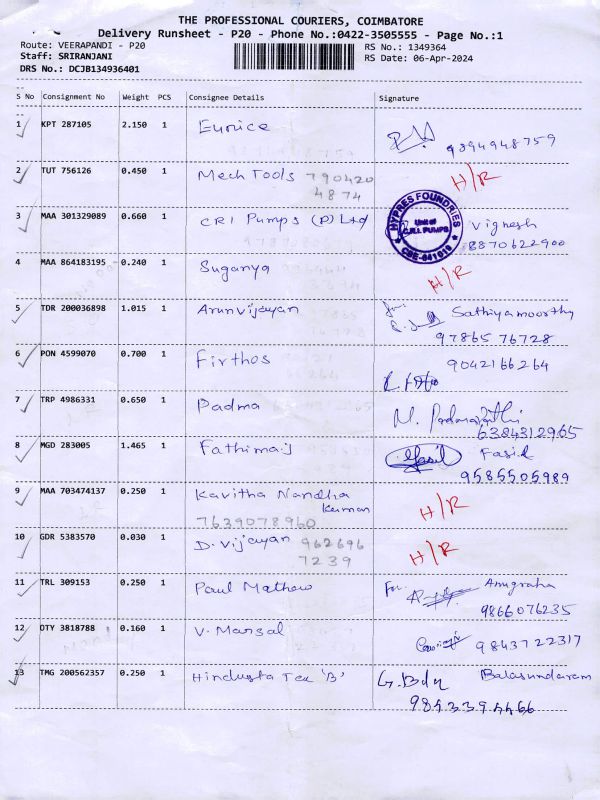 THE PROFESSIONAL COURIERS, COIMBATORE
Delivery Runsheet - P20 - Phone No.:0422-3505555 - Page No.:1
Route: VEERAPANDI - P20 RS No.: 1349364
Staff: SRIRANJANI RS Date: 06-Apr-2024
DRS No.: DCJB134936401
S No Consignment No Weight PCS Consignee Details Signature
1 KPT 287105 2.150 1 Eunice 9894948759
2 TUT 756126 0.450 1 Mech Tools 790420 H/R
4874
3 MAA 301329089 0.660 1 CRI Pumps (P) Ltd Vignesh
HYPRES FOUNDRIES
Unit of
C.R.I. PUMPS
CBE-641019
8870622900
4 MAA 864183195 0.240 1 Suganya H/R
5 TDR 200036898 1.015 1 Arunvijayan for Sathiyamoorthy
97865 76728
6 PON 4599070 0.700 1 Firthos 9042166264
7 TRP 4986331 0.650 1 Padma
6384312965
8 MGD 283005 1.465 1 Fathima.j Fasil
9585505989
9 MAA 703474137 0.250 1 Kavitha Nandha H/R
Kumar
7639078960
10 GDR 5383570 0.030 1 D. Vijayan 962696 H/R
7239
11 TRL 309153 0.250 1 Paul Mathew For Anugraha
9866076235
12 OTY 3818788 0.160 1 V. Mansal 9843722317
13 TMG 200562357 0.250 1 Hindusta Tea 'B' Balasundaram
9843394466